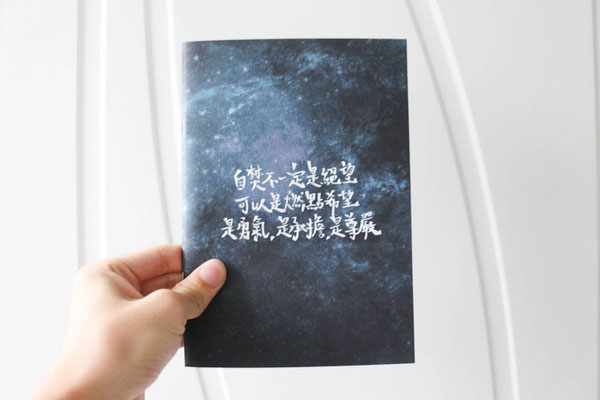 自焚不一定是絕望
可以是燃點希望
是勇氣,是承擔,是尊嚴